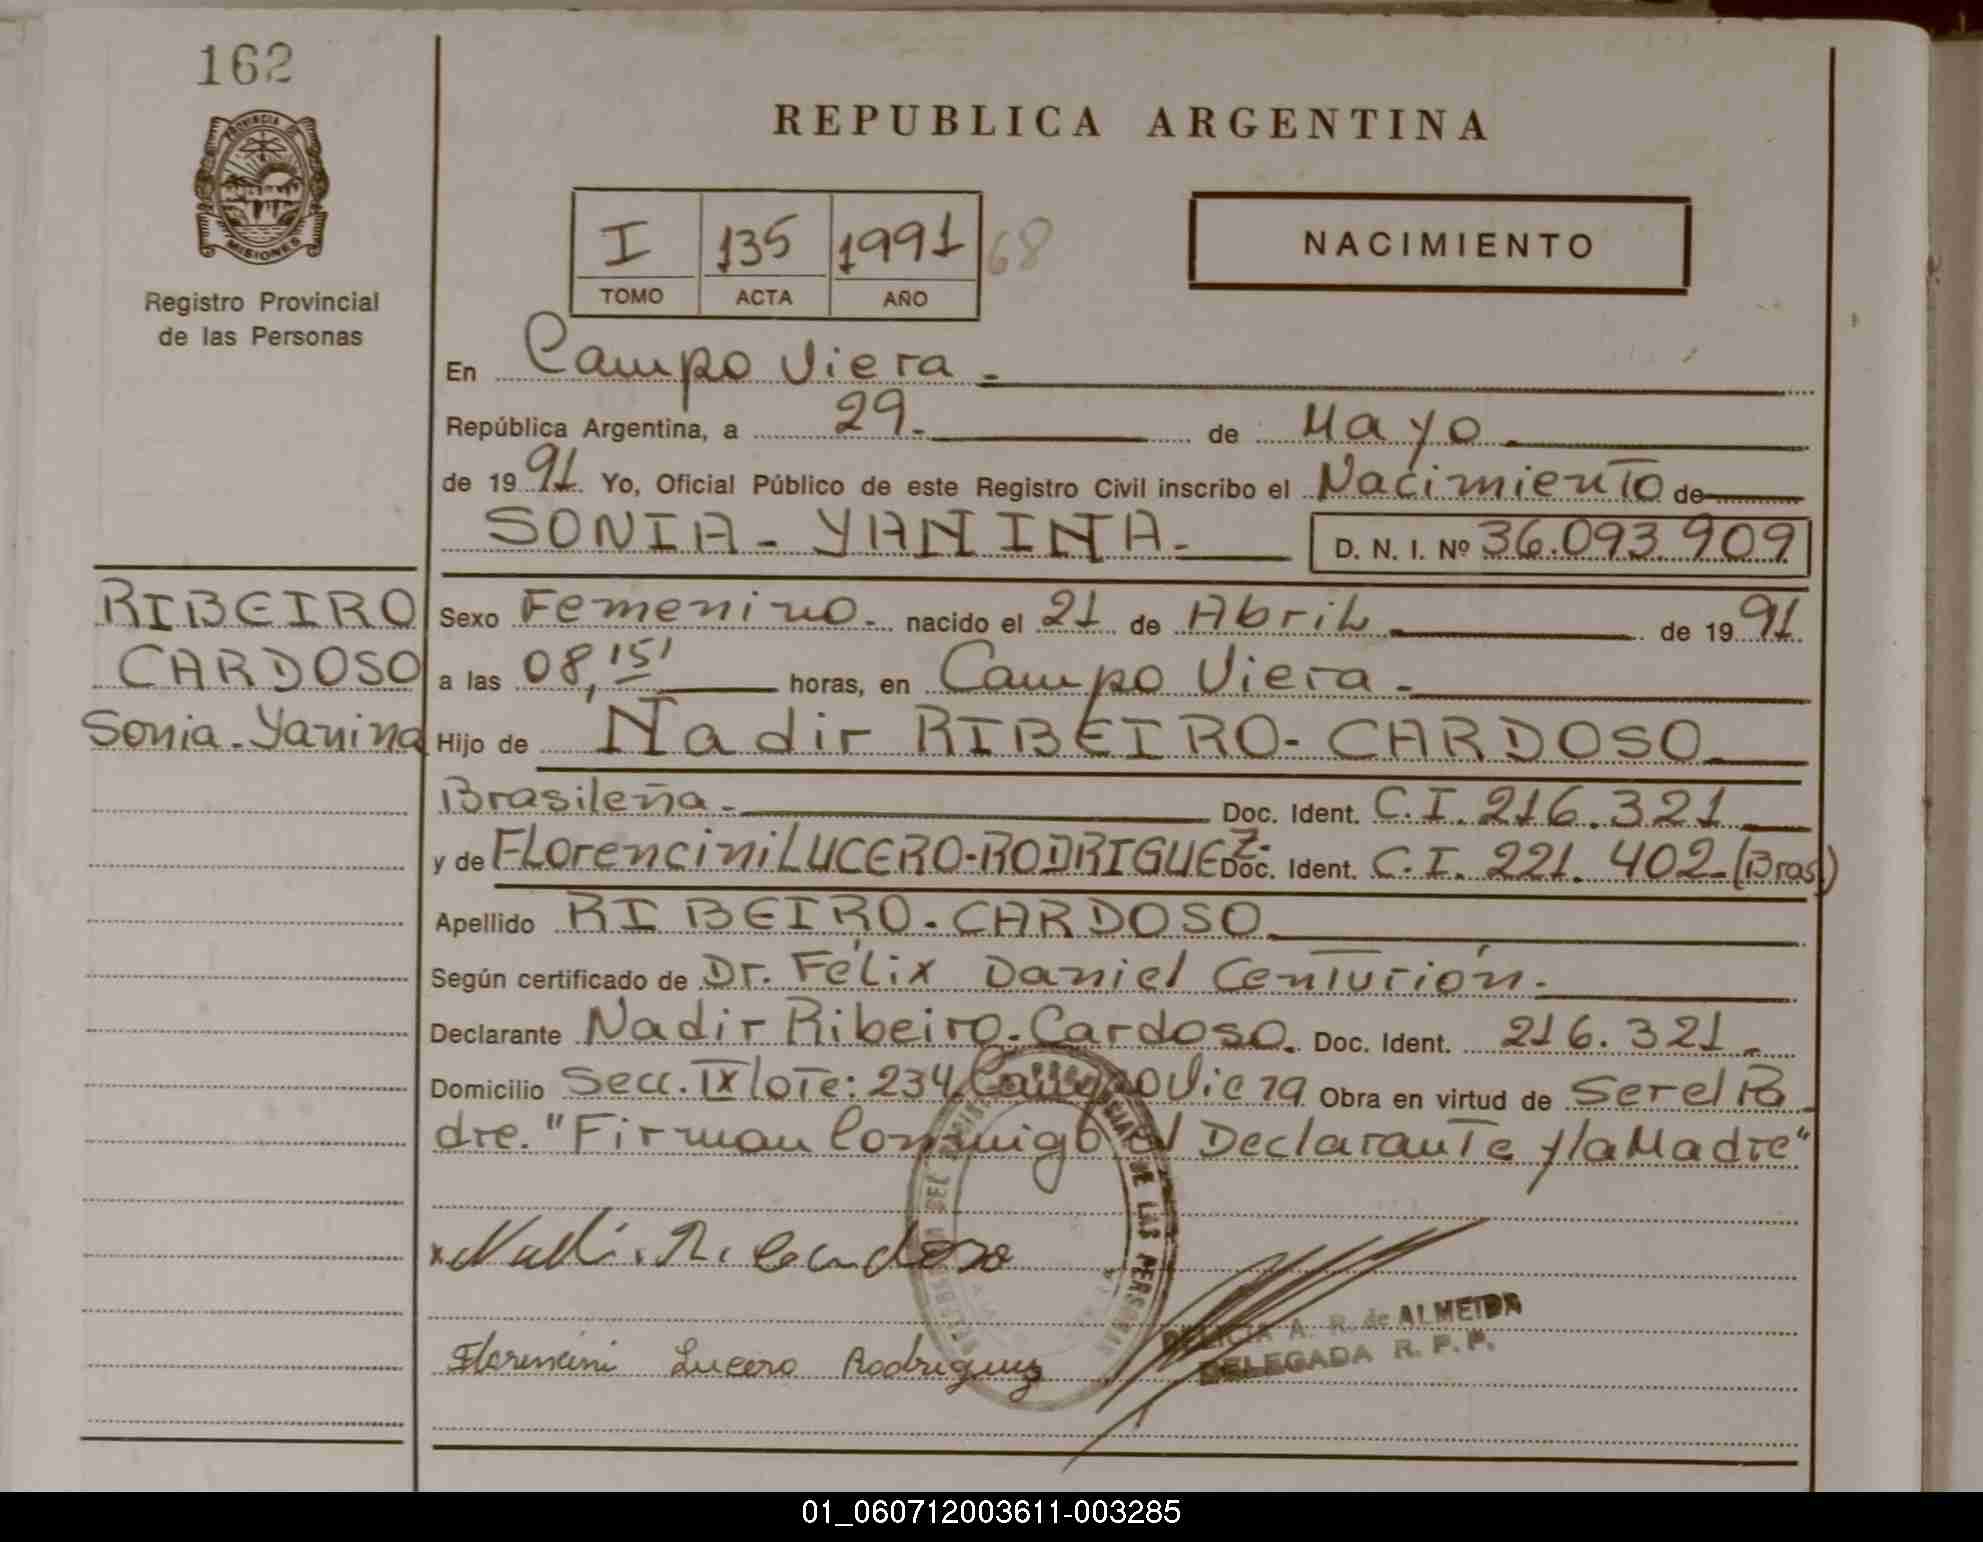 162
PROVINCIA DE
MISIONES
Registro Provincial
de las Personas
REPUBLICA ARGENTINA
I 135 1991 68
TOMO ACTA AÑO
NACIMIENTO
En Campo Viera.
República Argentina, a 29. de Mayo.
de 1991. Yo, Oficial Público de este Registro Civil inscribo el Nacimiento de
SONIA - YANINA. D. N. I. Nº 36.093.909
RIBEIRO
CARDOSO
Sonia-Yanina
Sexo Femenino. nacido el 21 de Abril de 1991.
a las 08,15' horas, en Campo Viera.
Hijo de Nadir RIBEIRO-CARDOSO
Brasileña. Doc. Ident. C.I. 216.321
y de FLorencini LUCERO-RODRIGUEZ. Doc. Ident. C.I. 221.402-(Bras)
Apellido RIBEIRO-CARDOSO
Según certificado de Dr. Félix Daniel Centurión.
Declarante Nadir Ribeiro-Cardoso. Doc. Ident. 216.321.
Domicilio Secc. IX lote: 234 Campo Viera Obra en virtud de Ser el Pa
dre. "Firman Conmigo el Declarante y la Madre"
DE LAS PERSONAS
Florencini Lucero Rodriguez
A. R. de ALMEIDA
DELEGADA R. P. P.
01_060712003611-003285